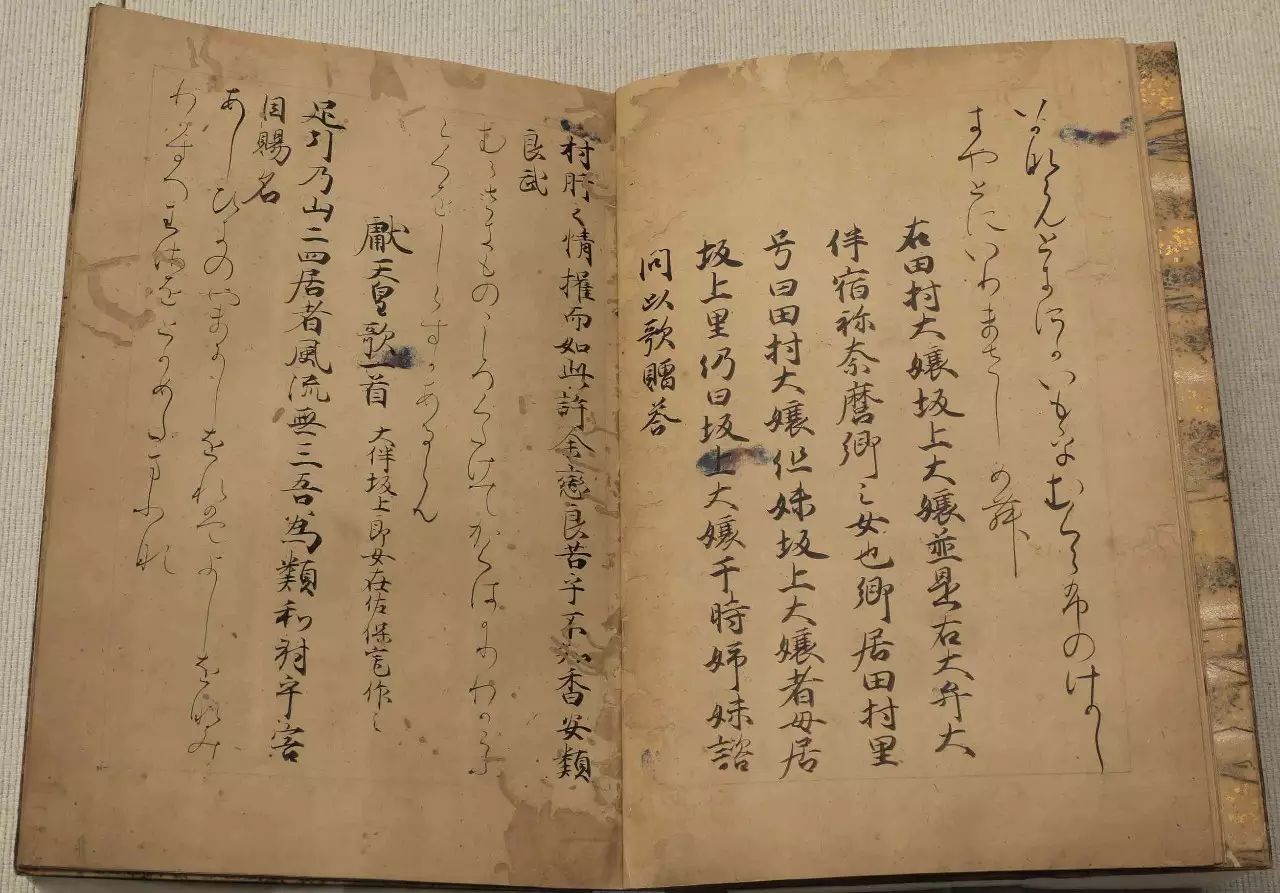 いかならんときにかいもをむくらふのけかし
右田村大嬢坂上大嬢並是右大弁大
伴宿祢奈麿卿之女也卿居田村里
号曰田村大嬢但妹坂上大嬢者母居
坂上里仍曰坂上大嬢于時姉妹諮
問以歌贈答
村肝之情摧而如此許余戀良苦乎不知香安類
良武
むらきものこゝろくたけてかくはかりわかこふ
らくをしらすかあるらん
獻天皇歌一首 大伴坂上郎女在佐保宅作之
足引乃山二四居者風流無三吾為類和射乎害
目賜名
あしひきのやまにしをれはよしをなみ
わかするわさをとかめたまふな